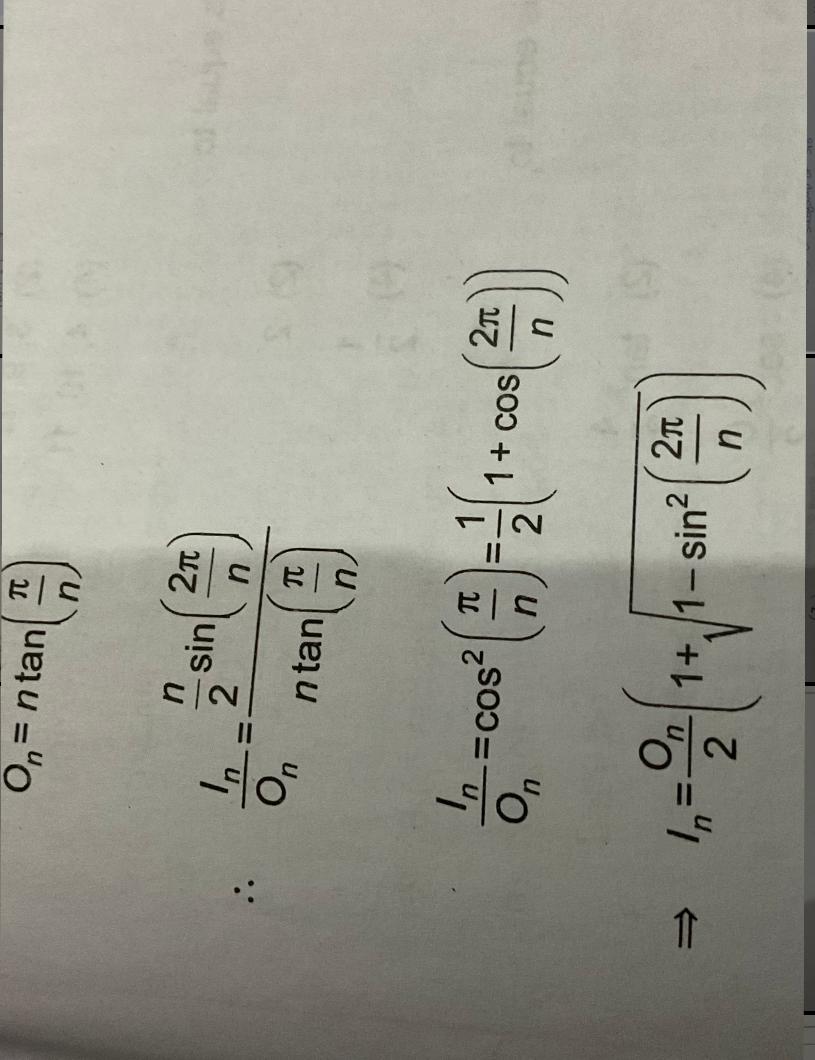 Oₙ = n tan(π/n)
∴ Iₙ/Oₙ = (n/2 sin(2π/n))/(n tan(π/n))
Iₙ/Oₙ = cos²(π/n) = 1/2(1 + cos(2π/n))
⇒ Iₙ = Oₙ/2(1 + √(1 – sin²(2π/n)))